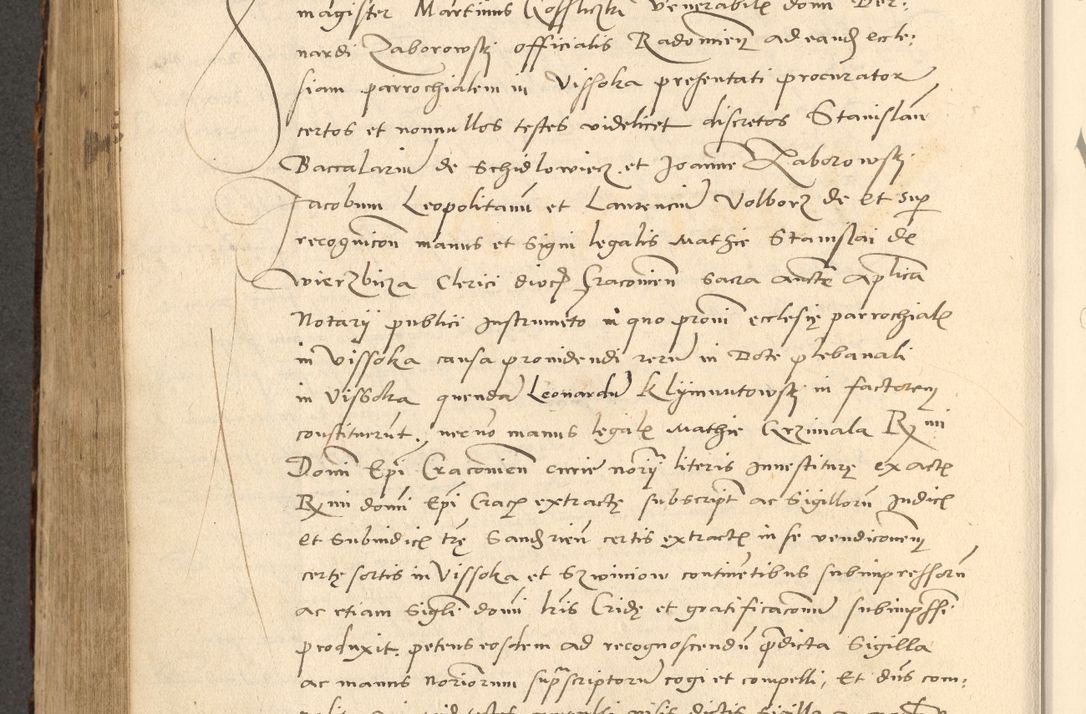 magister Martinus Kossliczki venerabilis domi Ber:
nardi Zaborowskj officialis Radomien ad eand eccle:
siam parrochialem in Vissoka presentati procurator
certos et nonnullos testes videlicet discretos Stanislau
Baccalariu de Schidlowiecz et Joanne Zaborowskj
Jacobum Leopolitanu et Laurenciu Volborz de et sup
recognicon manus et signi legalis Mathie Stanislai de
Wierzbicza Clerici dioc Cracovien sacra aucte aplica
Notarij publici instrumeto in quo provi ecclesie parrochial
in Vissoka causa providendi reru in dote plebanali
in Vissoka quenda Leonardu Klymuntowskj in factorem
constituerut, necno manus legal Mathie Krzimala R mi
Domi Epi Cracovien curie norij literis investiture ex act
R mi domi Epi Crac extracte subscript ac sigilloru Judic
et Subiudic tre Sandrien certis extract in se vendiconem
certe sortis in Vissoka et Szwiniow continetibus subimpressoru
ac etiam sigli domi lris Cride et gratificaconu subimpssi
produxit, petens eosdem ad recognoscendu pdicta Sigilla
ac manus Notriorum supascriptoru cogi et compelli, Et dns com: